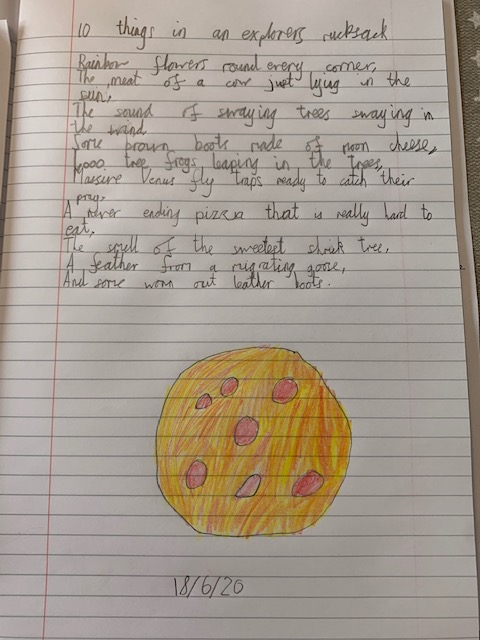 10 things in an explorers rucksack
Rainbow flowers round every corner,
The meat of a cow just lying in the
sun,
The sound of swaying trees swaying in
the wind,
Some brown boots made of moon cheese,
1,000 tree frogs leaping in the trees,
Massive Venus fly traps ready to catch their
prey,
A never ending pizza that is really hard to
eat,
The smell of the sweetest tree,
A feather from a migrating goose,
And some worn out leather boots.
18/6/20